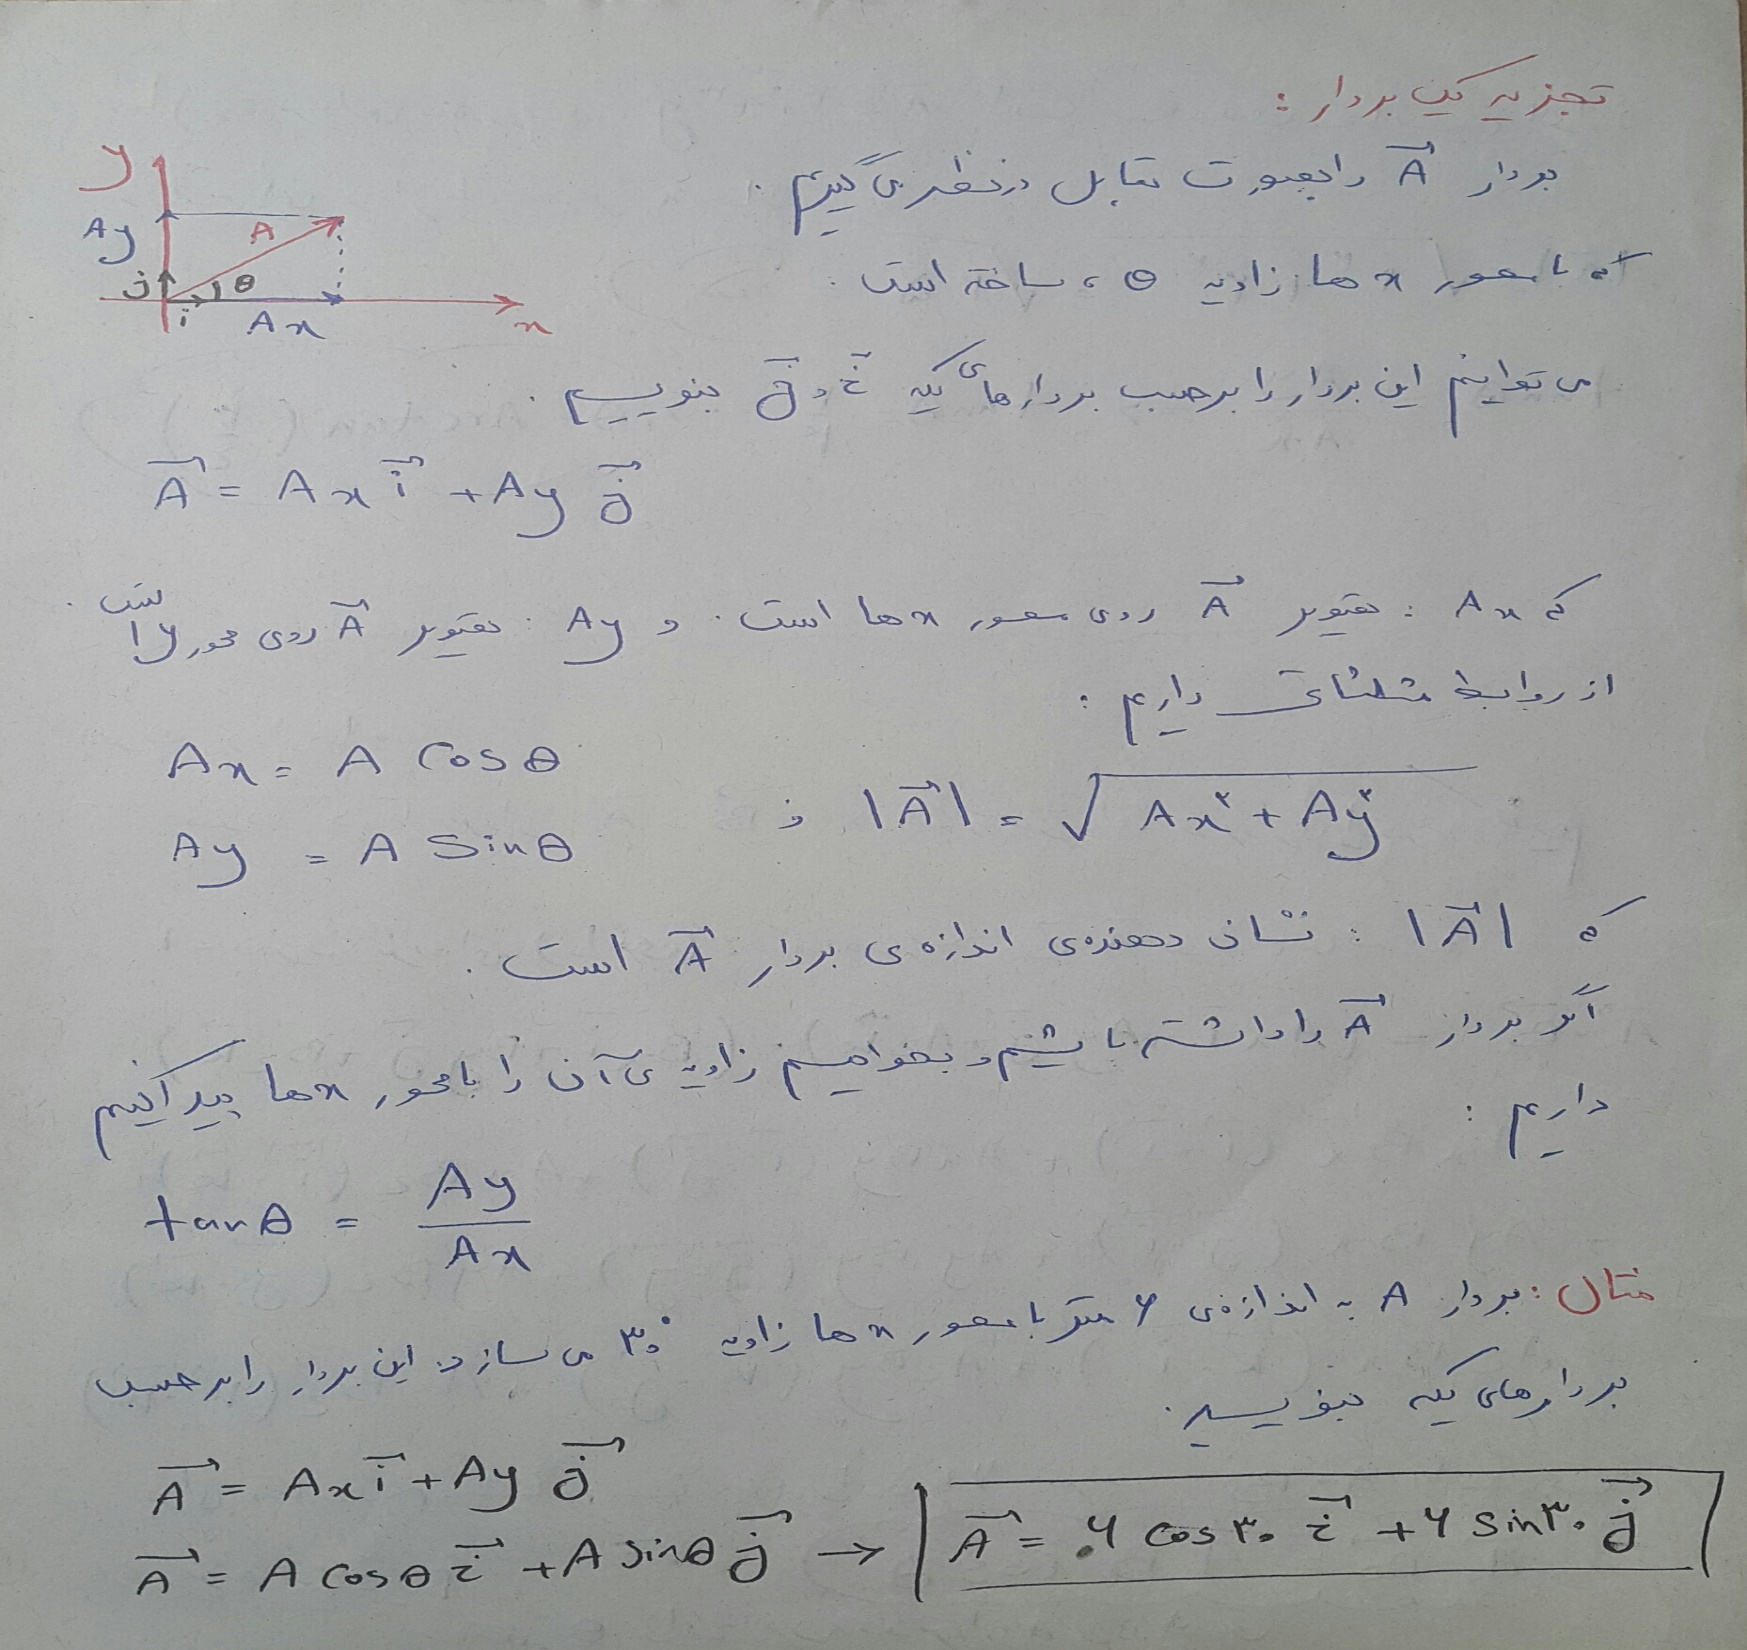 تجزیه یک بردار :
بردار A را بصورت مقابل در نظر می گیریم .
که با محور x ها زاویه θ ، ساخته است .
y
Ay
A
j
θ
i
Ax
x
می توانیم این بردار را برحسب بردارهای یکه i و j بنویسیم .
A = Ax i + Ay j
که Ax : تصویر A روی محور x ها است . و Ay : تصویر A روی محور y است .
از روابط مثلثاتی داریم :
Ax = A Cos θ
Ay = A Sin θ
و |A| = √Ax² + Ay²
که |A| : نشان دهنده ی اندازه ی بردار A است .
اگر بردار A را داشته باشیم و بخواهیم زاویه ی آن را با محور x ها پیدا کنیم
داریم :
tan θ = Ay / Ax
مثال : بردار A به اندازه ی ۶ متر با محور x ها زاویه ۳۰° می سازد. این بردار را برحسب
بردارهای یکه بنویسید.
A = Ax i + Ay j
A = A Cos θ i + A sin θ j → A = ۶ Cos ۳۰ i + ۶ Sin ۳۰ j